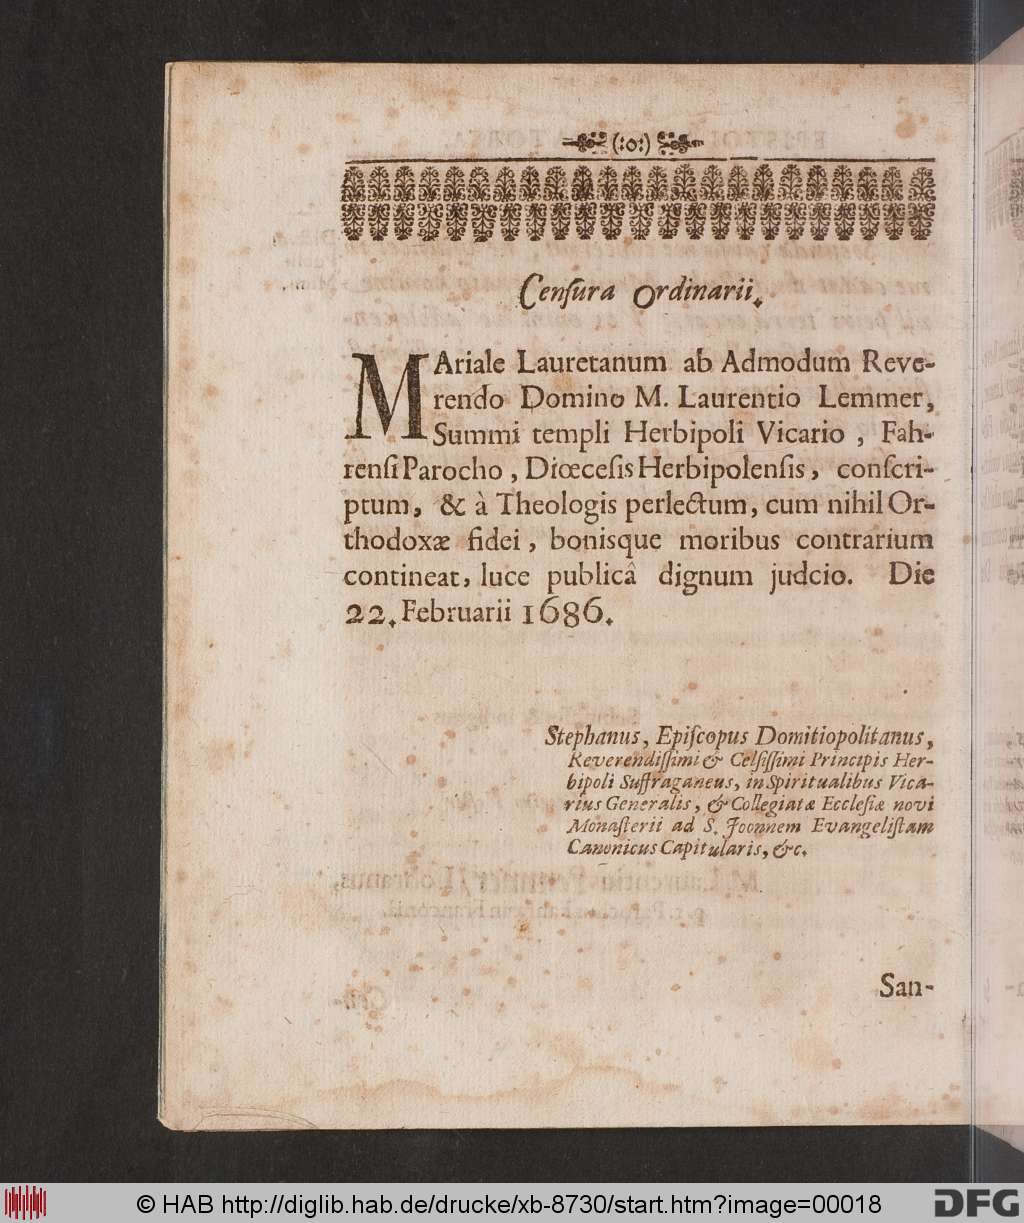 (:o:)
Cenſura Ordinarii.
MAriale Lauretanum ab Admodum Reve-
rendo Domino M. Laurentio Lemmer,
Summi templi Herbipoli Vicario , Fah-
renſi Parocho , Diœceſis Herbipolenſis, conſcri-
ptum, & à Theologis perlectum, cum nihil Or-
thodoxæ fidei , bonisque moribus contrarium
contineat, luce publicâ dignum judcio. Die
22. Februarii 1686.
Stephanus, Epiſcopus Domitiopolitanus,
Reverendiſſimi & Celſiſſimi Principis Her-
bipoli Suffraganeus, in Spiritualibus Vica-
rius Generalis, & Collegiatæ Eccleſiæ novi
Monaſterii ad S. Joonnem Evangeliſtam
Canonicus Capitularis, &c.
San-
© HAB http://diglib.hab.de/drucke/xb-8730/start.htm?image=00018
DFG